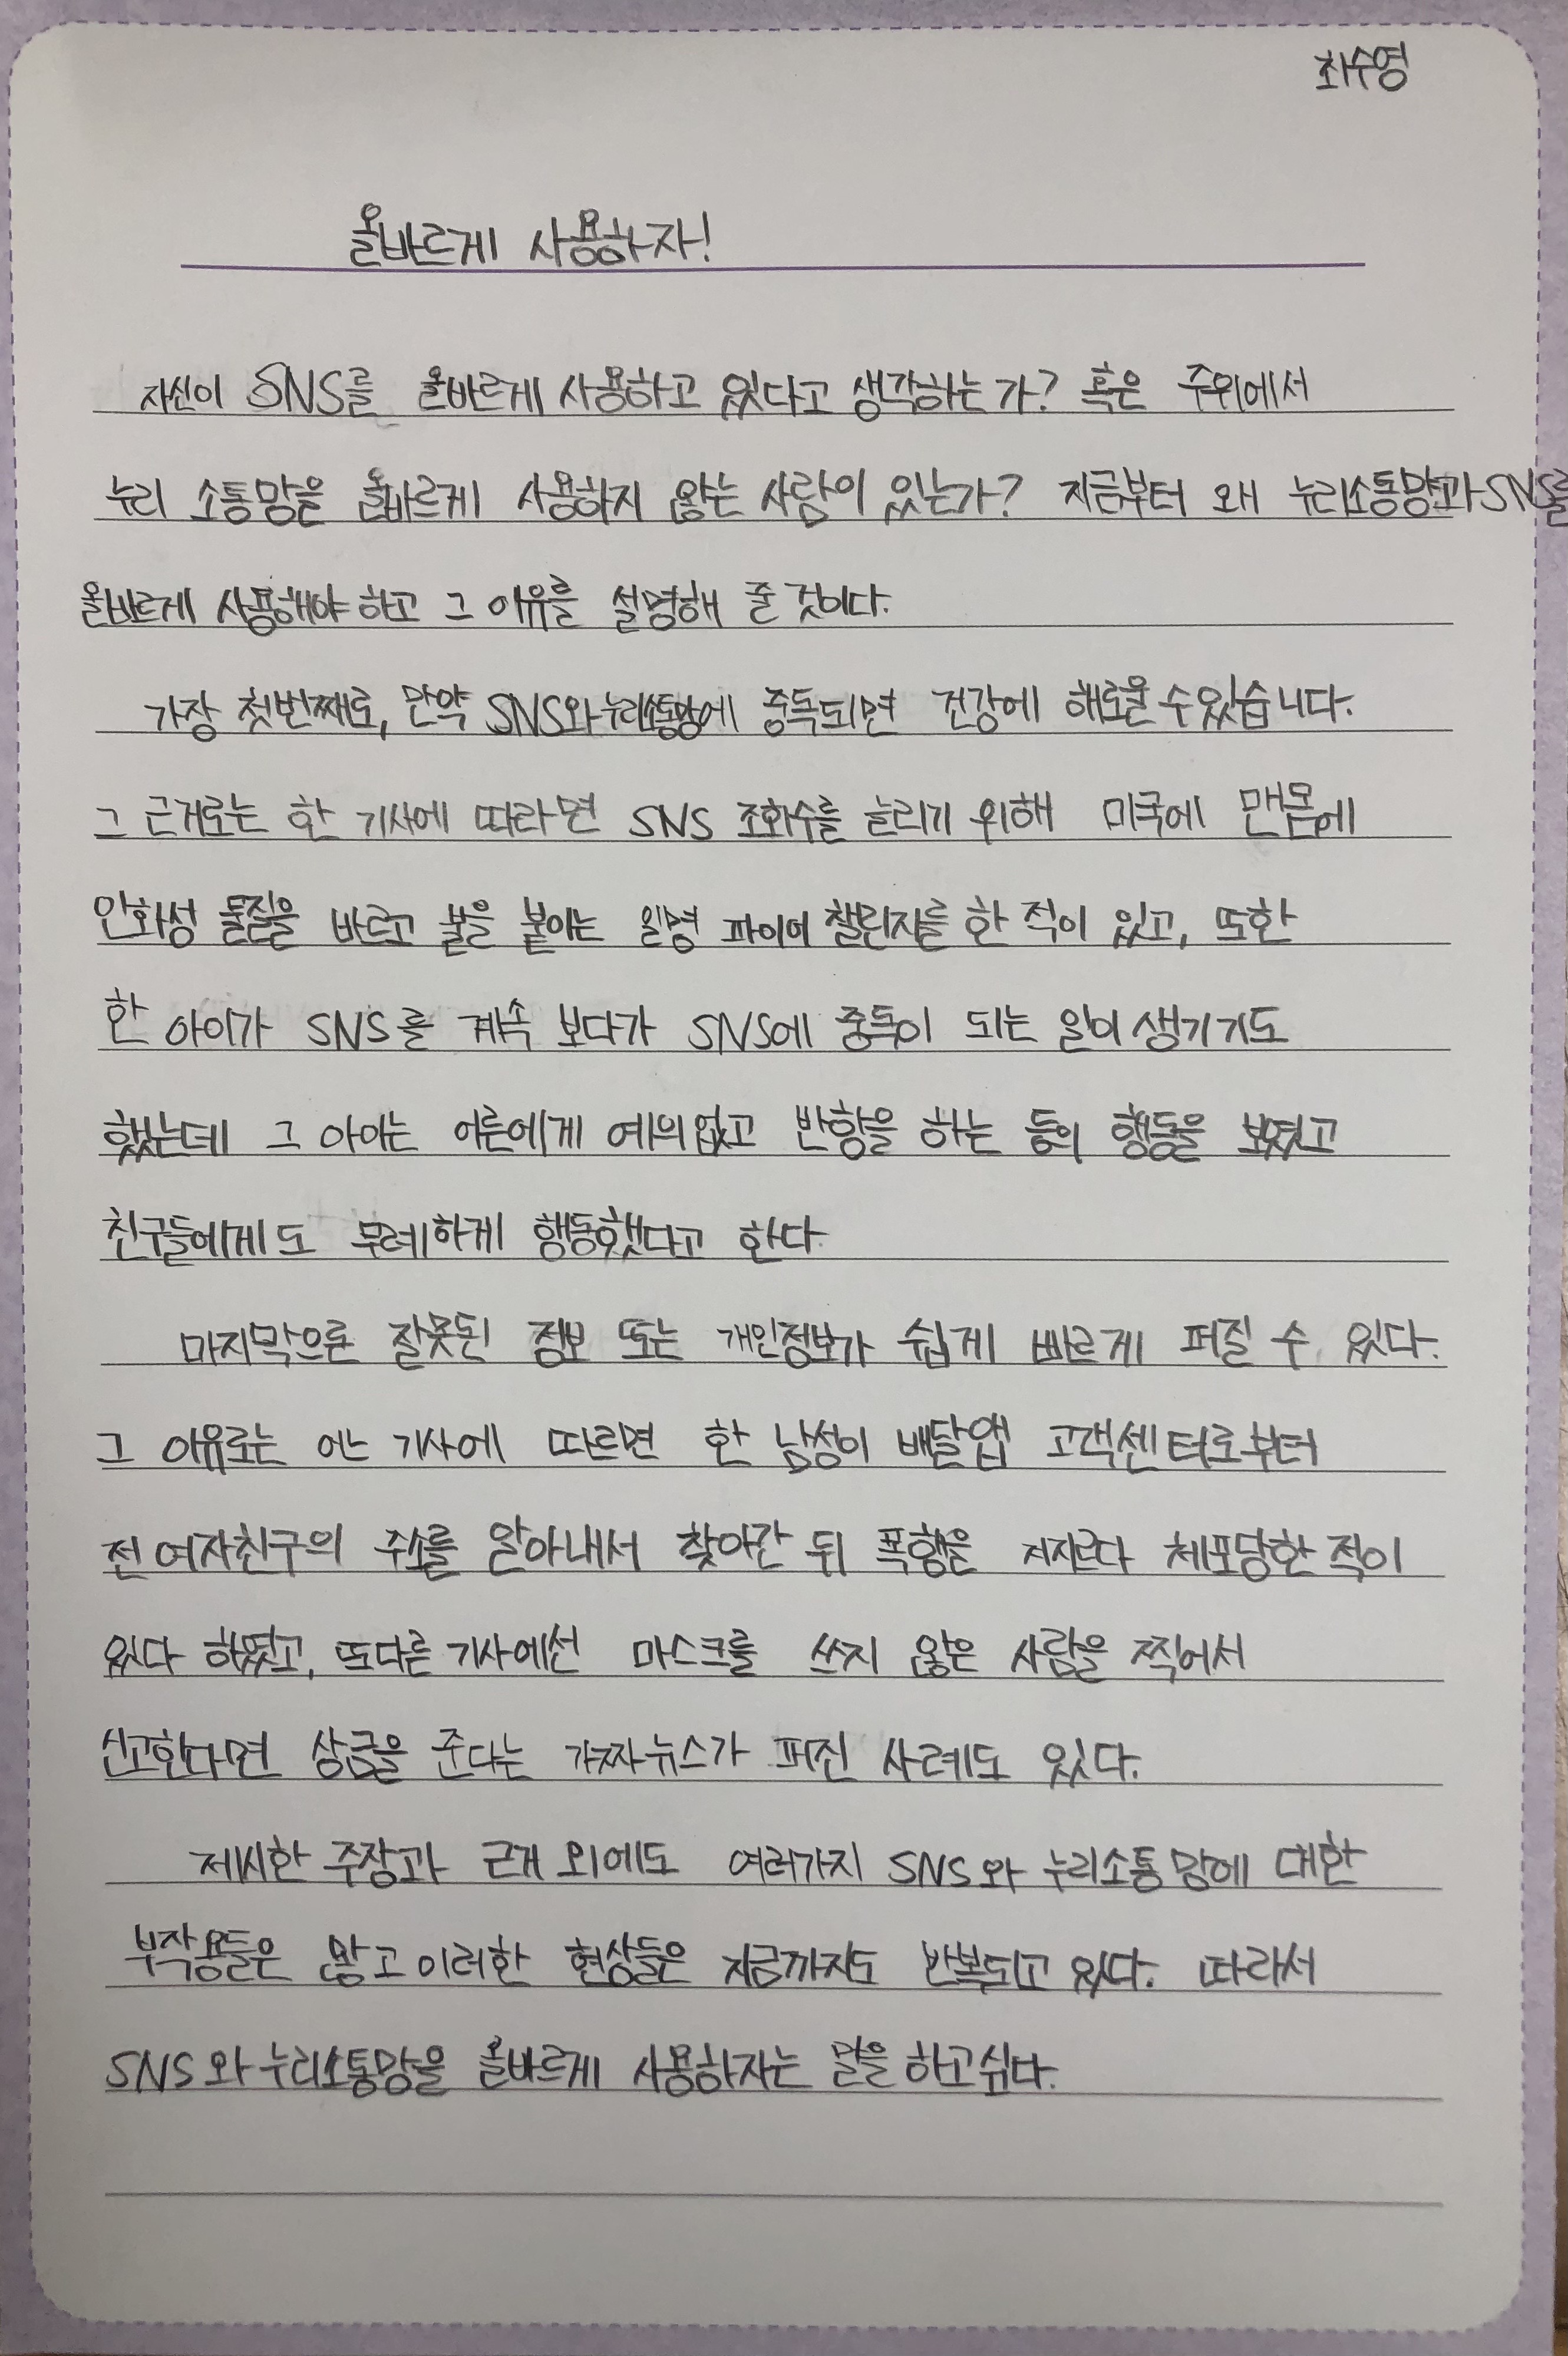 최수영
올바르게 사용하자!
자신이 SNS를 올바르게 사용하고 있다고 생각하는가? 혹은 주위에서
누리 소통망을 올바르게 사용하지 않는 사람이 있는가? 지금부터 왜 누리소통망과 SNS를
올바르게 사용해야 하고 그 이유를 설명해 줄 것이다.
가장 첫번째로, 만약 SNS와 누리소통망에 중독되면 건강에 해로울 수 있습니다.
그 근거로는 한 기사에 따라면 SNS 조회수를 늘리기 위해 미국에 맨몸에
인화성 물질을 바르고 불을 붙이는 일명 파이어 챌린지를 한 적이 있고, 또한
한 아이가 SNS를 계속 보다가 SNS에 중독이 되는 일이 생기기도
했는데 그 아이는 어른에게 예의없고 반항을 하는 등의 행동을 보였고
친구들에게도 무례하게 행동했다고 한다.
마지막으로 잘못된 정보 또는 개인정보가 쉽게 빠르게 퍼질 수 있다.
그 이유로는 어느 기사에 따르면 한 남성이 배달앱 고객센터로부터
전 여자친구의 주소를 알아내서 찾아간 뒤 폭행을 저지르다 체포당한 적이
있다 하였고, 또다른 기사에선 마스크를 쓰지 않은 사람을 찍어서
신고한다면 상금을 준다는 가짜뉴스가 퍼진 사례도 있다.
제시한 주장과 근거 외에도 여러가지 SNS와 누리소통망에 대한
부작용들은 많고 이러한 현상들은 지금까지도 반복되고 있다. 따라서
SNS와 누리소통망을 올바르게 사용하자는 말을 하고싶다.